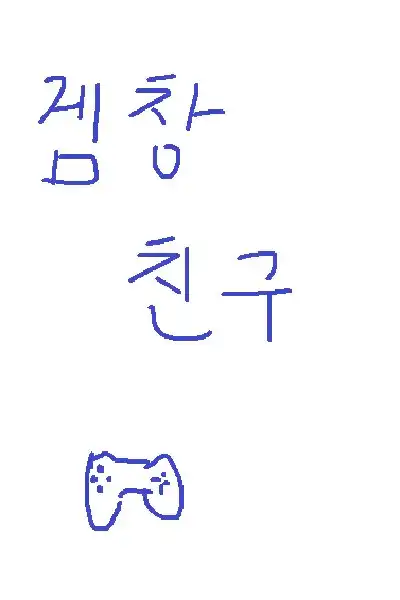 겜창
친구